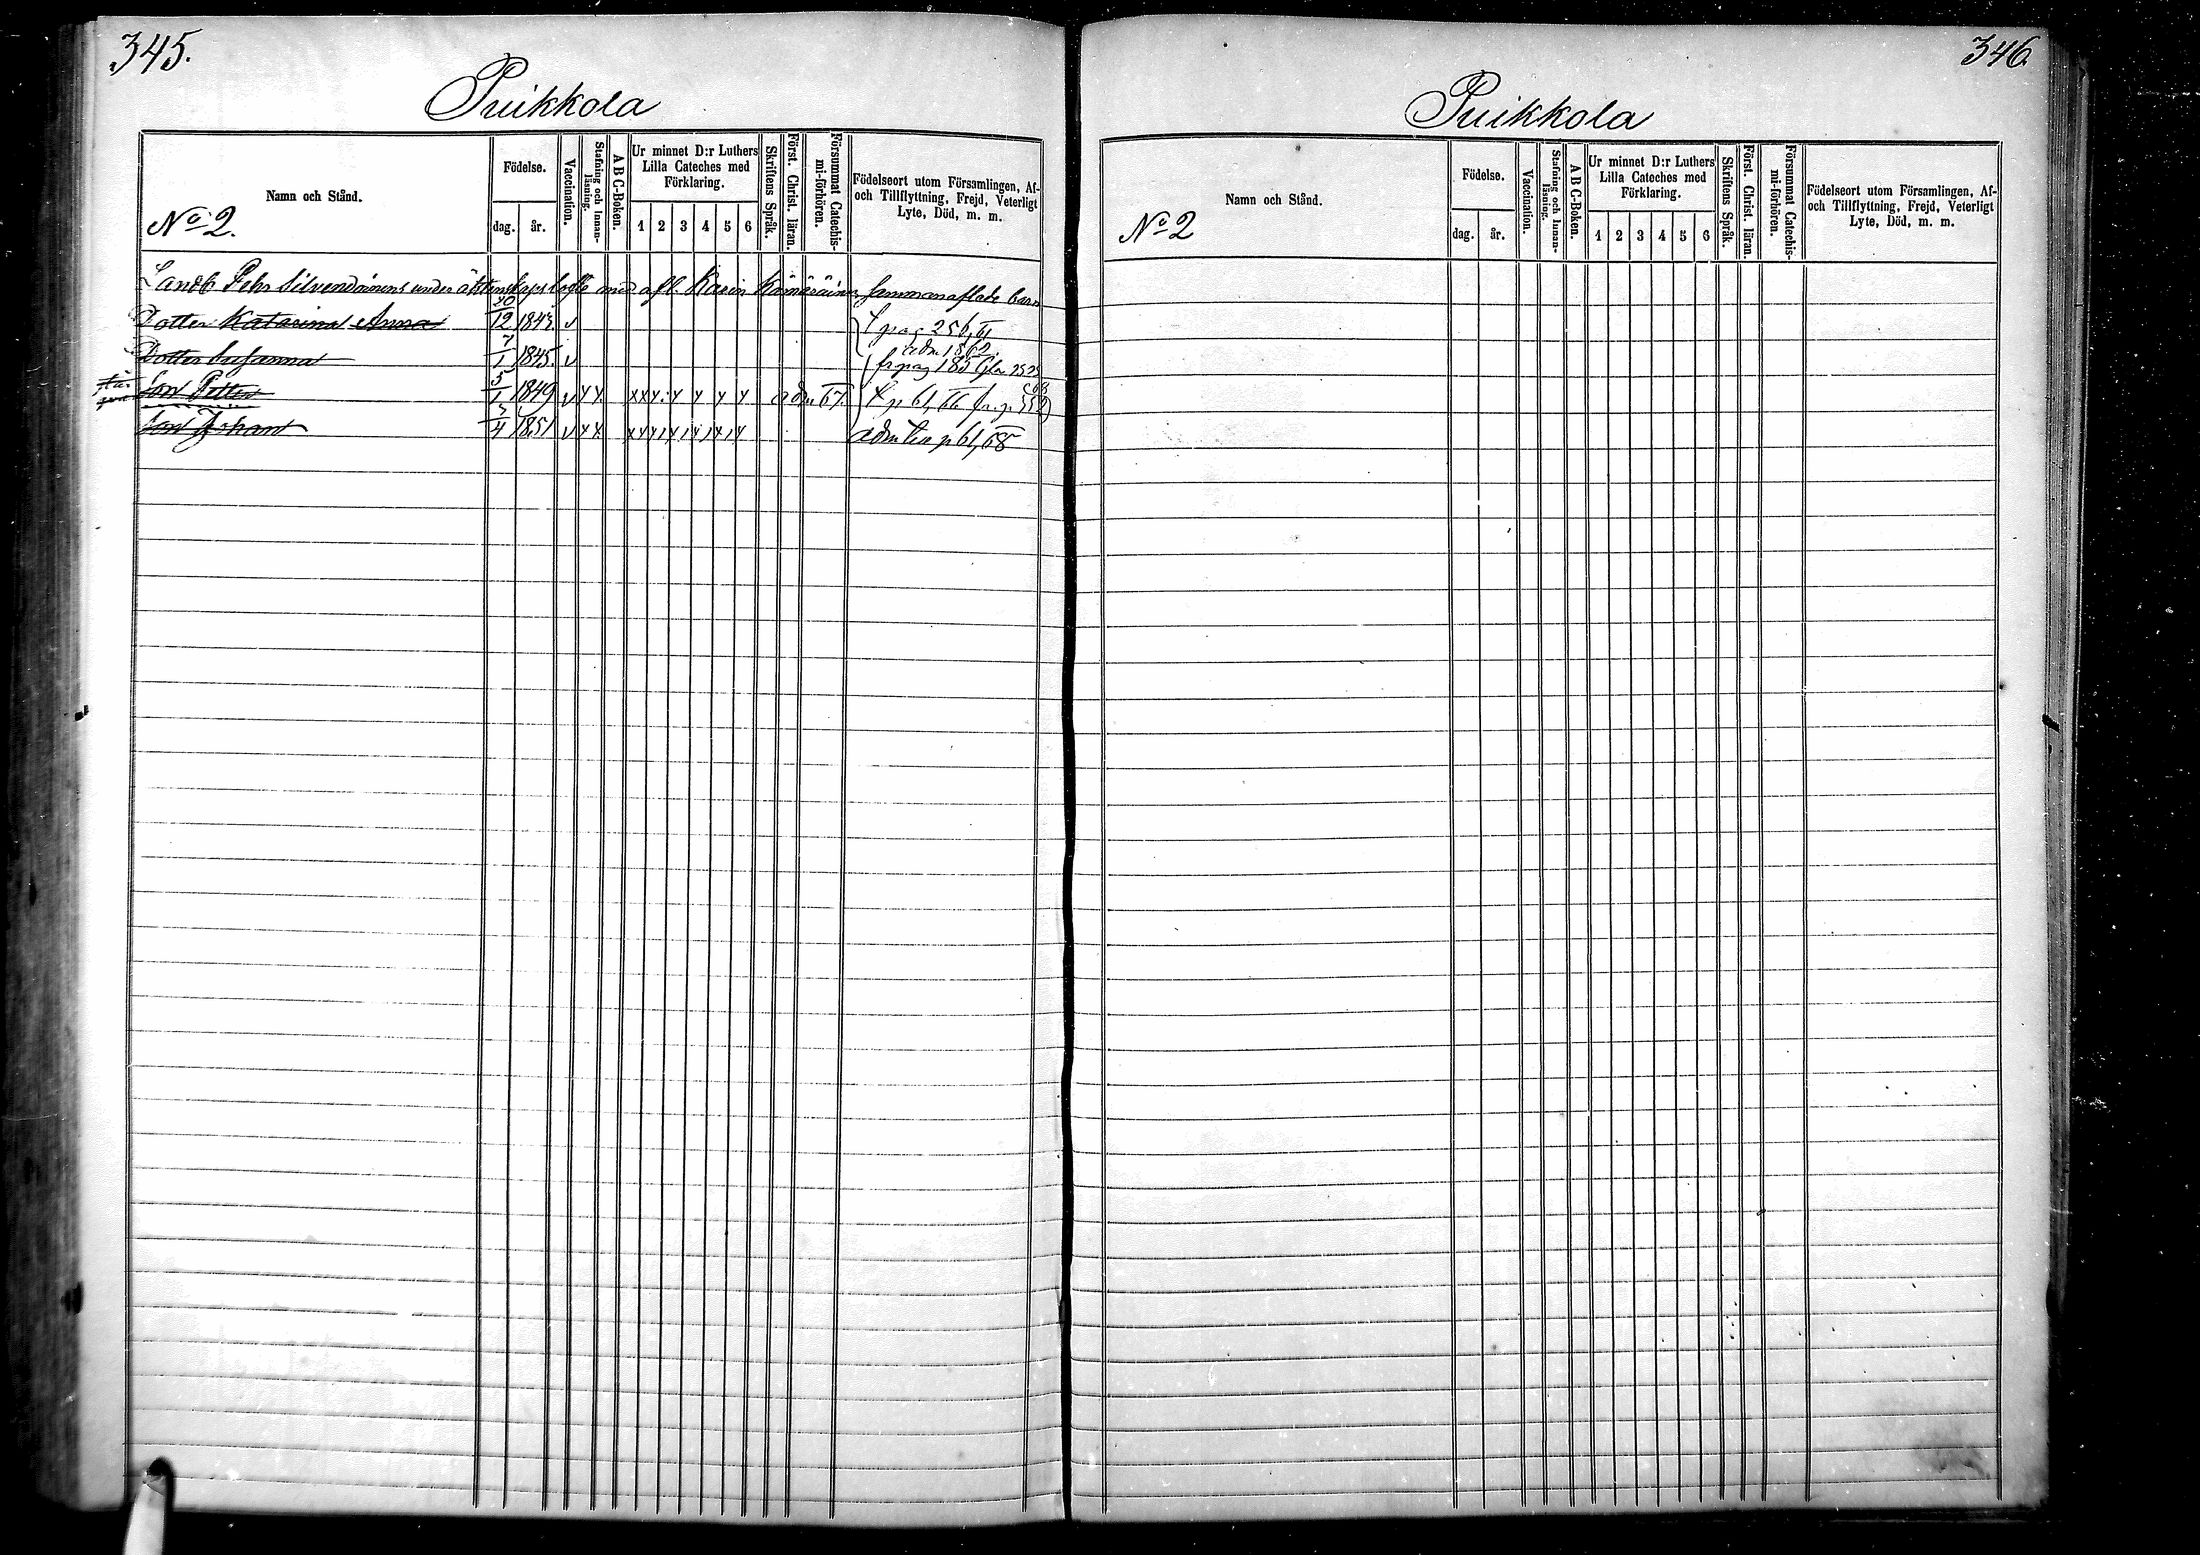 345.
Puikkola
Namn och Stånd.
No 2.
Födelse.
dag.
år.
Vaccination.
Stafning och Innan-
läsning.
A B C-Boken.
Ur minnet D:r Luthers
Lilla Cateches med
Förklaring.
1 2 3 4 5 6
Skriftens Språk.
Först. Christ. läran.
Försummat Catechis-
mi-förhören.
Födelseort utom Församlingen, Af-
och Tillflyttning, Frejd, Veterligt
Lyte, Död, m. m.
Landb Pehr Silvendoinens under äktenskaps löfte med afl. Karin Kämäräinen sammanaflade barn
Dotter Katarina Anna 20/12 1843 v pag 256, 61
adm 1862.
Dotter Susanna 7/1 1845. v fr pag 185
Son Petter 5/1 1849 v x x x x x x x x x adm 67. p 61, fr. p.
Son Johan 3/4 1851 v x x x x x x x x x adm p 61, 68
346.
Puikkola
Namn och Stånd.
No 2
Födelse.
dag.
år.
Vaccination.
Stafning och Innan-
läsning.
A B C-Boken.
Ur minnet D:r Luthers
Lilla Cateches med
Förklaring.
1 2 3 4 5 6
Skriftens Språk.
Först. Christ. läran.
Försummat Catechis-
mi-förhören.
Födelseort utom Församlingen, Af-
och Tillflyttning, Frejd, Veterligt
Lyte, Död, m. m.